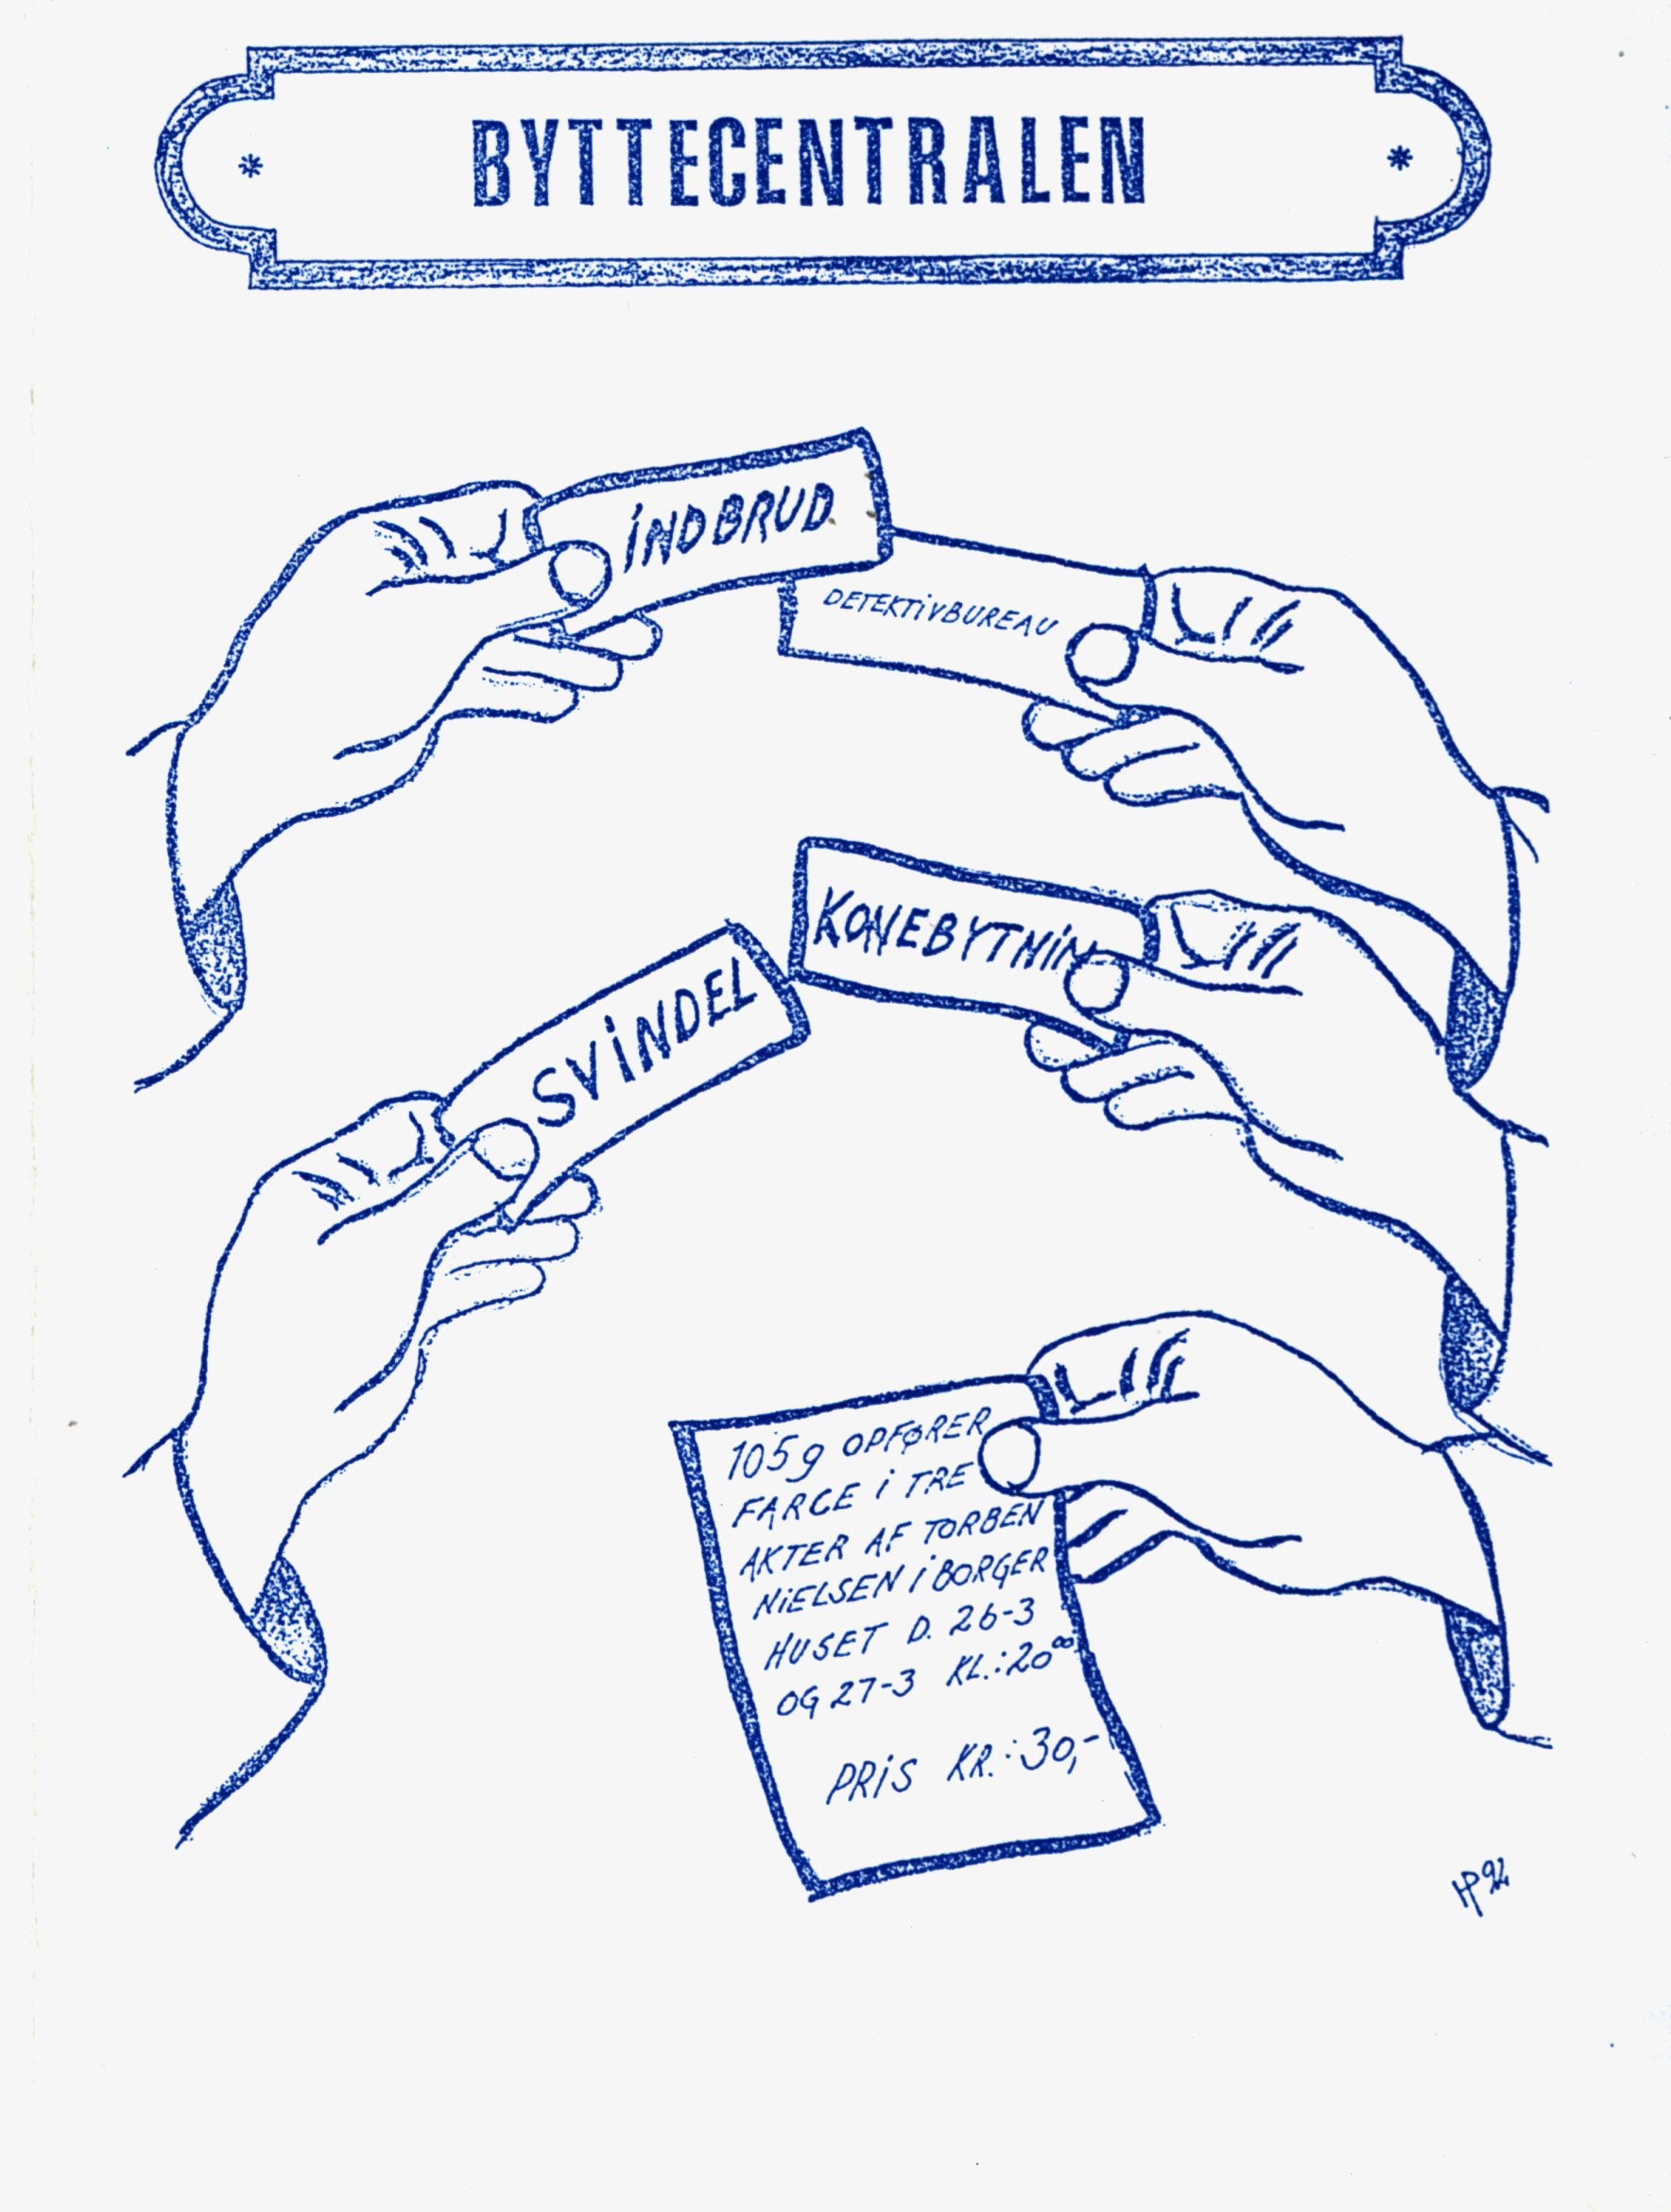 * BYTTECENTRALEN *
INDBRUD
DETEKTIVBUREAU
KONEBYTNIN
SVINDEL
105g OPFØRER
FARCE I TRE
AKTER AF TORBEN
NIELSEN I BORGER
HUSET D. 26-3
OG 27-3 KL.:20⁰⁰
PRIS KR.:30,-
HP 92